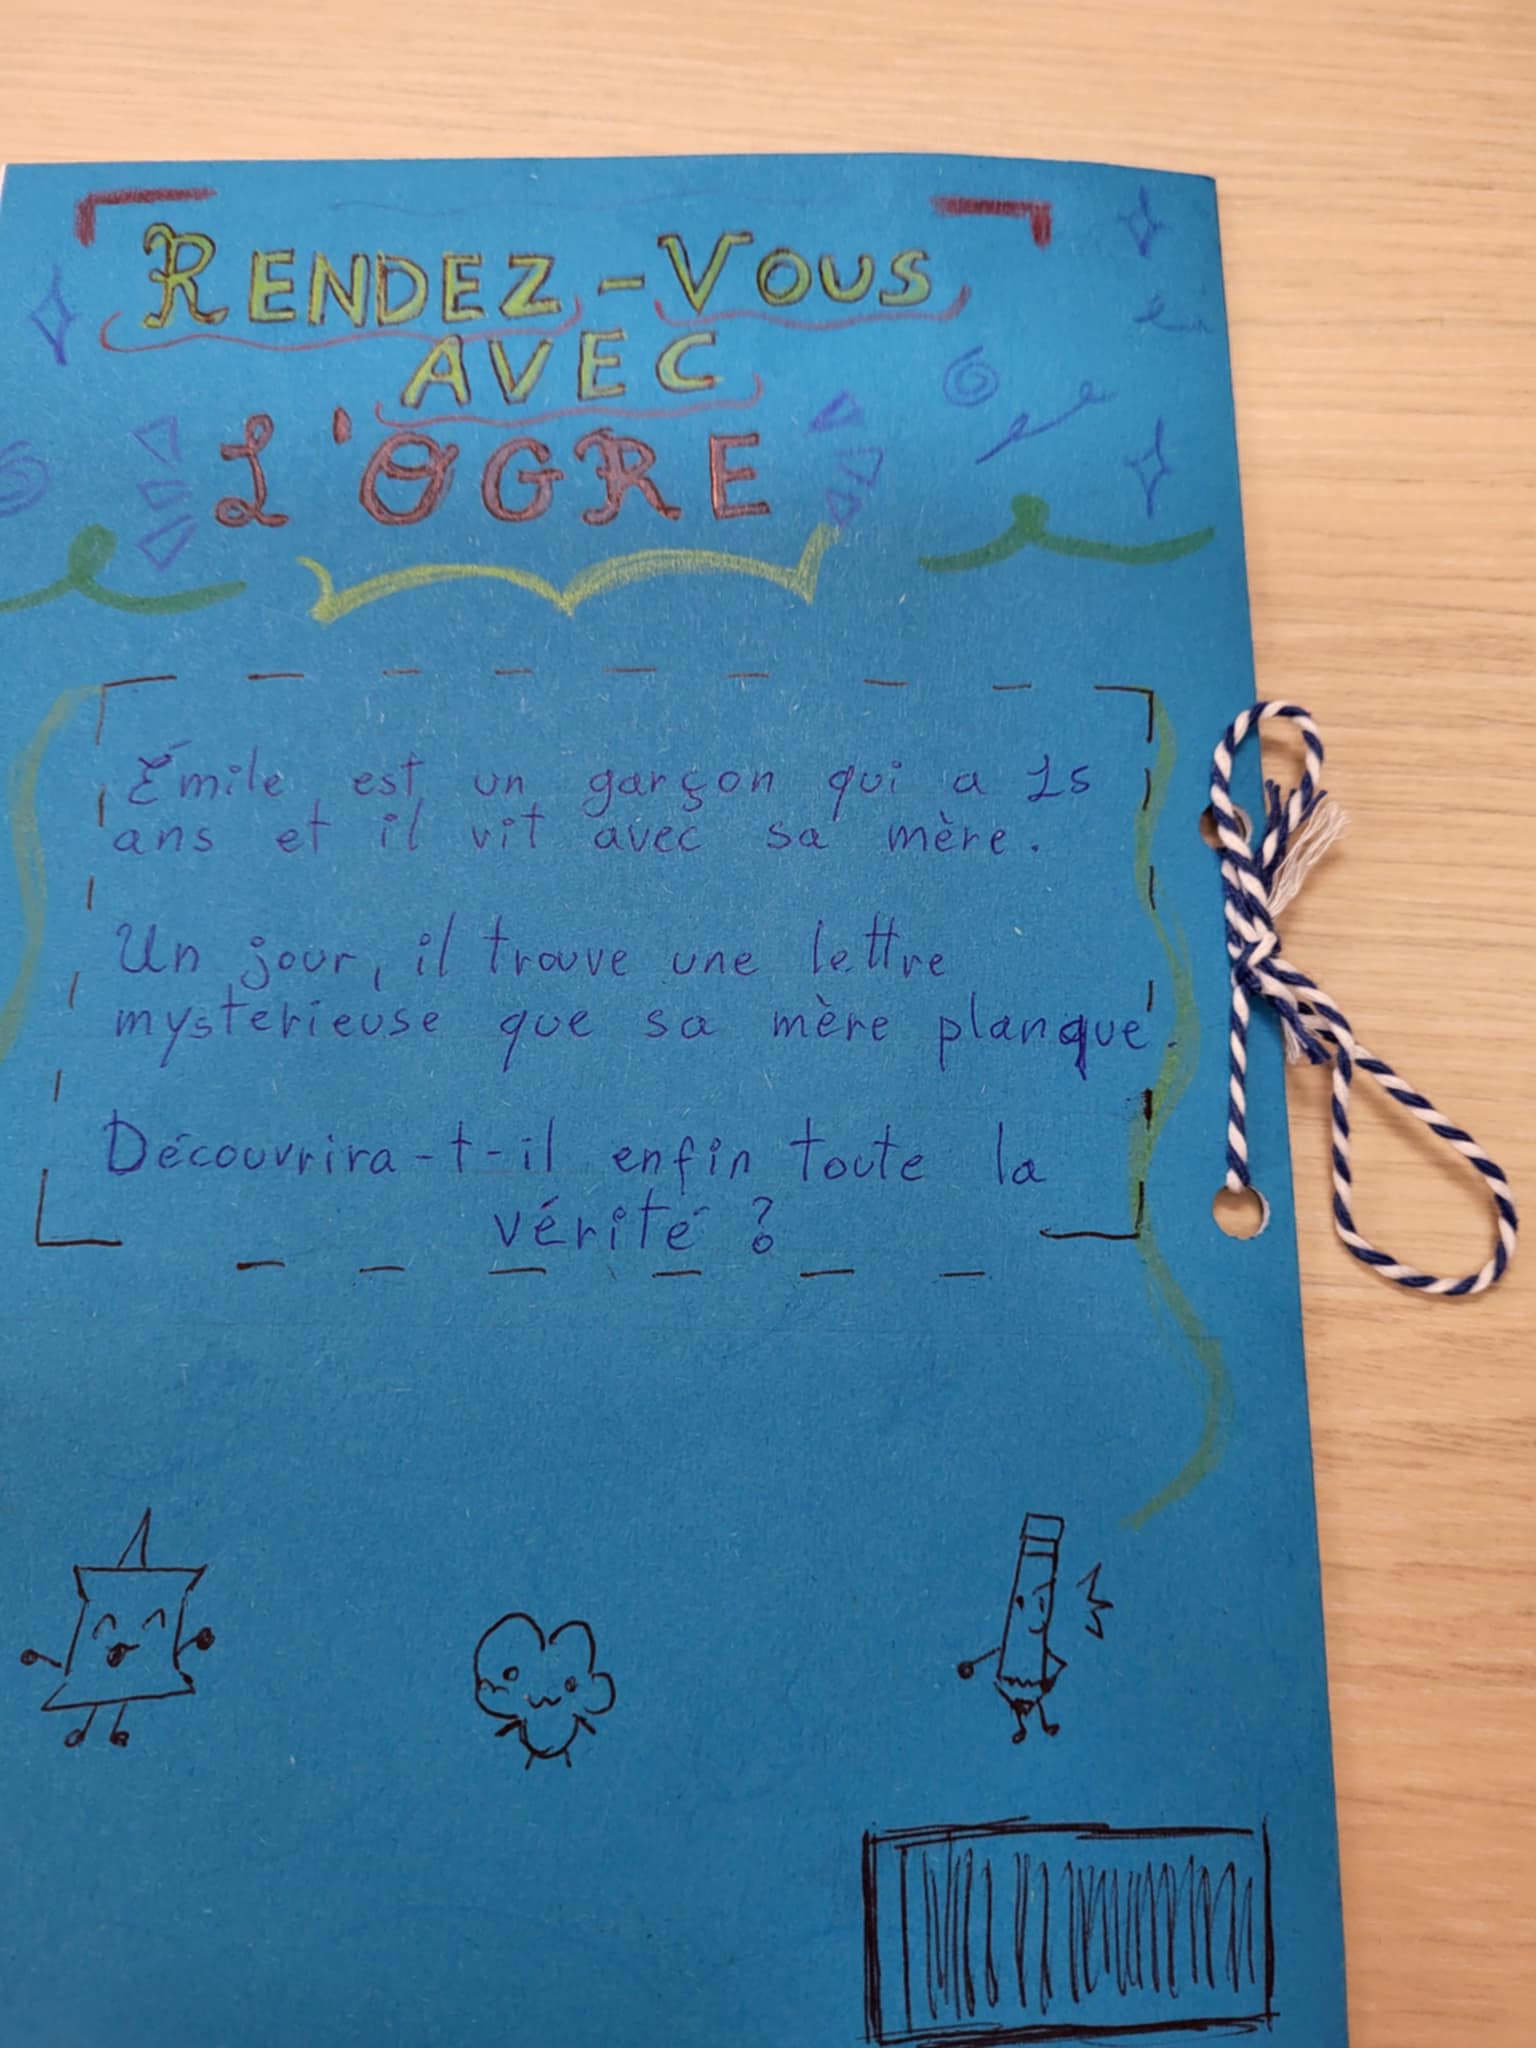 RENDEZ-VOUS
AVEC
L'OGRE
Émile est un garçon qui a 15
ans et il vit avec sa mère.
Un jour, il trouve une lettre
mysterieuse que sa mère planque.
Découvrira-t-il enfin toute la
vérité ?